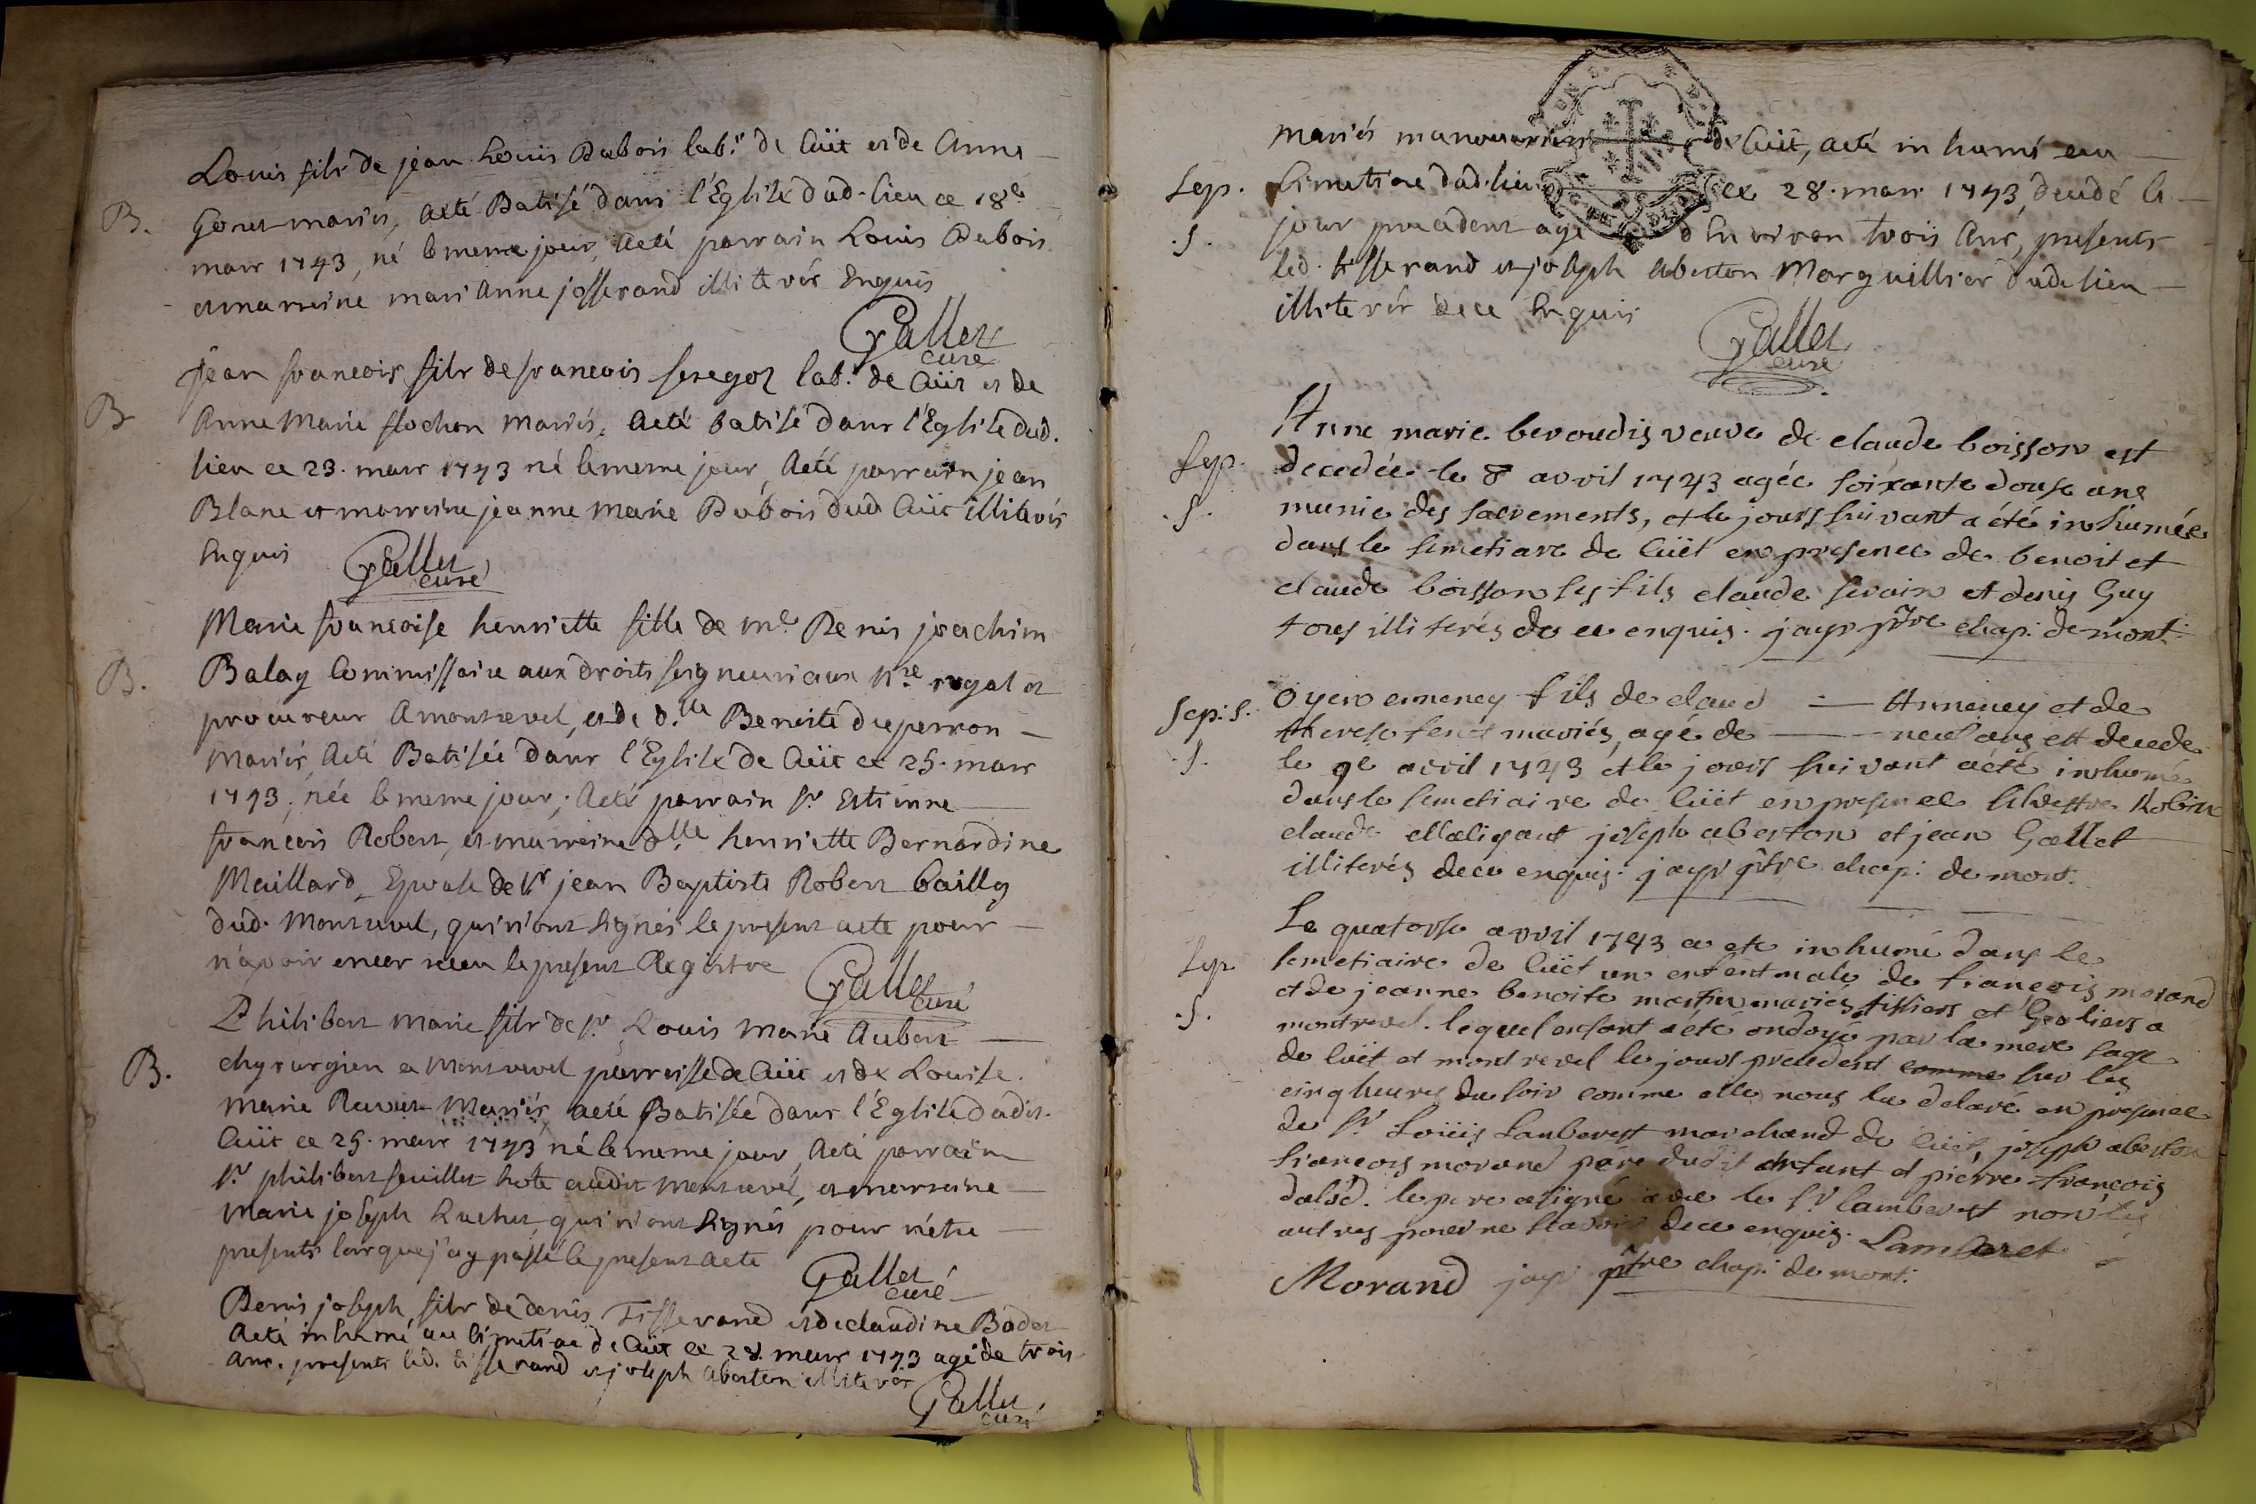 Louis fils de jean Louis Dubois lab.r de Cüet et de Anne
B. Gonet mariés, aeté Batisé dans l'Eglise dud. lieu ce 18e
mars 1743, né le meme jour, aeté parrain Louis Dubois
et marreine mari Anne josserand illiterés Enquis
Gallet curé
jean francois fils de francois feregoz lab.r de Cüet et de
B Anne Marie flochon mariés, aeté batisé dans l'Eglise dud.
lieu ce 23. mars 1743 né le meme jour, aeté parrain jean
Blanc et marreine jeanne Marie Dubois dud Cüet illiterés
Enquis Gallet curé
Marie francoise henriette fille de me. Denis joachim
B. Balay Commissaire aux droits seigneuriaux Nre. royal et
procureur a montrevel, et de d.lle Benoite duperron
Mariés, aeté Batisée dans l'Eglise de Cüet ce 25. mars
1743, née le meme jour, aeté parrain sr Estienne
francois Robert, et marreine d.lle henriette Bernardine
Maillard, Epouse de sr jean Baptiste Robert bailly
dud. Montrevel, qui n'ont signés le present acte pour
n'avoir encor receu le present Registre Gallet curé
Philibert Marie fils de sr. Louis Marie Aubert
B. chyrurgien a Montrevel parroisse de Cüet et de Louise
Marie Ravier Mariés, aeté Batisée dans l'Eglise dudit.
Cüet ce 25. mars 1743 né le meme jour, aeté parrain
sr. philibert feuillet hote audit Montrevel, et marreine
Marie joseph Luchet qui n'ont signés pour n'être
presents lorque j'ay passé le present acte Gallet curé
Denis joseph fils de denis Tisserand et de claudine Bodet
Aeté inhumé au Cimetiae de Cüet ce 28. mars 1743 agé de trois
ans. presents led. tisserand et joseph Aberton illiterés
Gallet curé
mariés manouvriers de Cüet, aeté in humé au
Sep. Cimetiae dud. lieu ce 28. mars 1743, decedé le
.S. jour precedent agé d'Environ trois Ans, presents
led. tisserand et joseph Aberton Marguillier dud. lieu
illiterés de ce Enquis
Gallet curé
Anne marie beroudis veuve de claude boisson est
Sep. decedée le 8 avril 1743 agée soixante douse ans
.S. munie des sacrements, et le jours suivant a été inhumée
dans le simetiare de Cüet en presence de benoit et
claude boisson ses fils claude serain et denis Guy
tous illiterés de ce enquis. jayr ptre chap: de mont:
Sep: S. oyen enneney fils de claud Anneney et de
therese mariés, agé de neuf ans est decede
.S. le 9e avril 1743 et le jours suivant aété inhumé
dans le simetiaire de Cüet en presence silvestre Robin
claude joseph aberton et jean Gallet
illiterés de ce enquis. jayr ptre chap: de mont.
Le quatorse avvil 1743 a ete inhumé dans le
Sep simetiaire de Cüet un enfent male de francois morand
.S. et de jeanne benoite martin mariés, et Geoliers a
montrevel. lequel enfant a été ondoyé par la mere sage
de Cüet et montrevel le jours precedent comme sur les
cinq heures du soir comme elle nous la delaré en presence
de sr Loüis Lamberest marchand de Cüet, joseph aberton
francois morand père dudit enfant et pierre francois
le pere a signé avec le sr lamberest non les
autres pour ne scavoir de ce enquis. Lamberet
Morand jayr ptre chap: de mont: